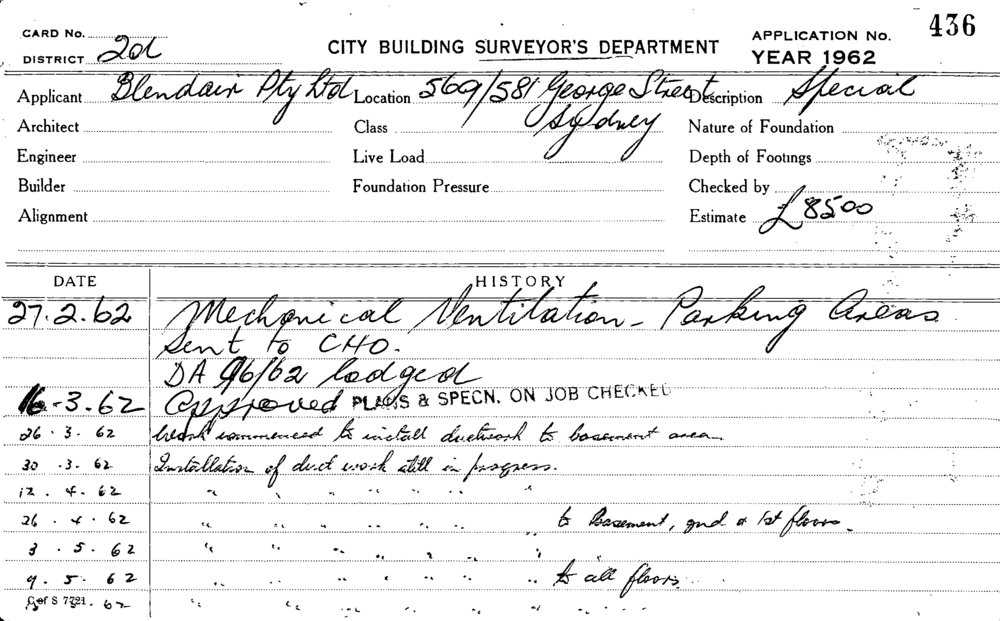 CARD No.
DISTRICT 2d
CITY BUILDING SURVEYOR'S DEPARTMENT
APPLICATION No. 436
YEAR 1962
Applicant Blendair Pty Ltd Location 569/581 George Street Description Special
Architect Class Sydney Nature of Foundation
Engineer Live Load Depth of Footings
Builder Foundation Pressure Checked by
Alignment Estimate £8500
DATE HISTORY
27.2.62 Mechanical Ventilation - Parking Areas
Sent to CHO.
DA 96/62 lodged
16-3.62 Approved PLANS & SPECN. ON JOB CHECKED
26.3.62 Work commenced to install ductwork to basement area
30.3.62 Installation of duct work still in progress.
12.4.62 " " " " " "
26.4.62 " " " " " " " to Basement, gnd & 1st floors.
3.5.62 " " " " " " "
9.5.62 " " " " " " " to all floors
C of S 7721 .62 " " " " " " "